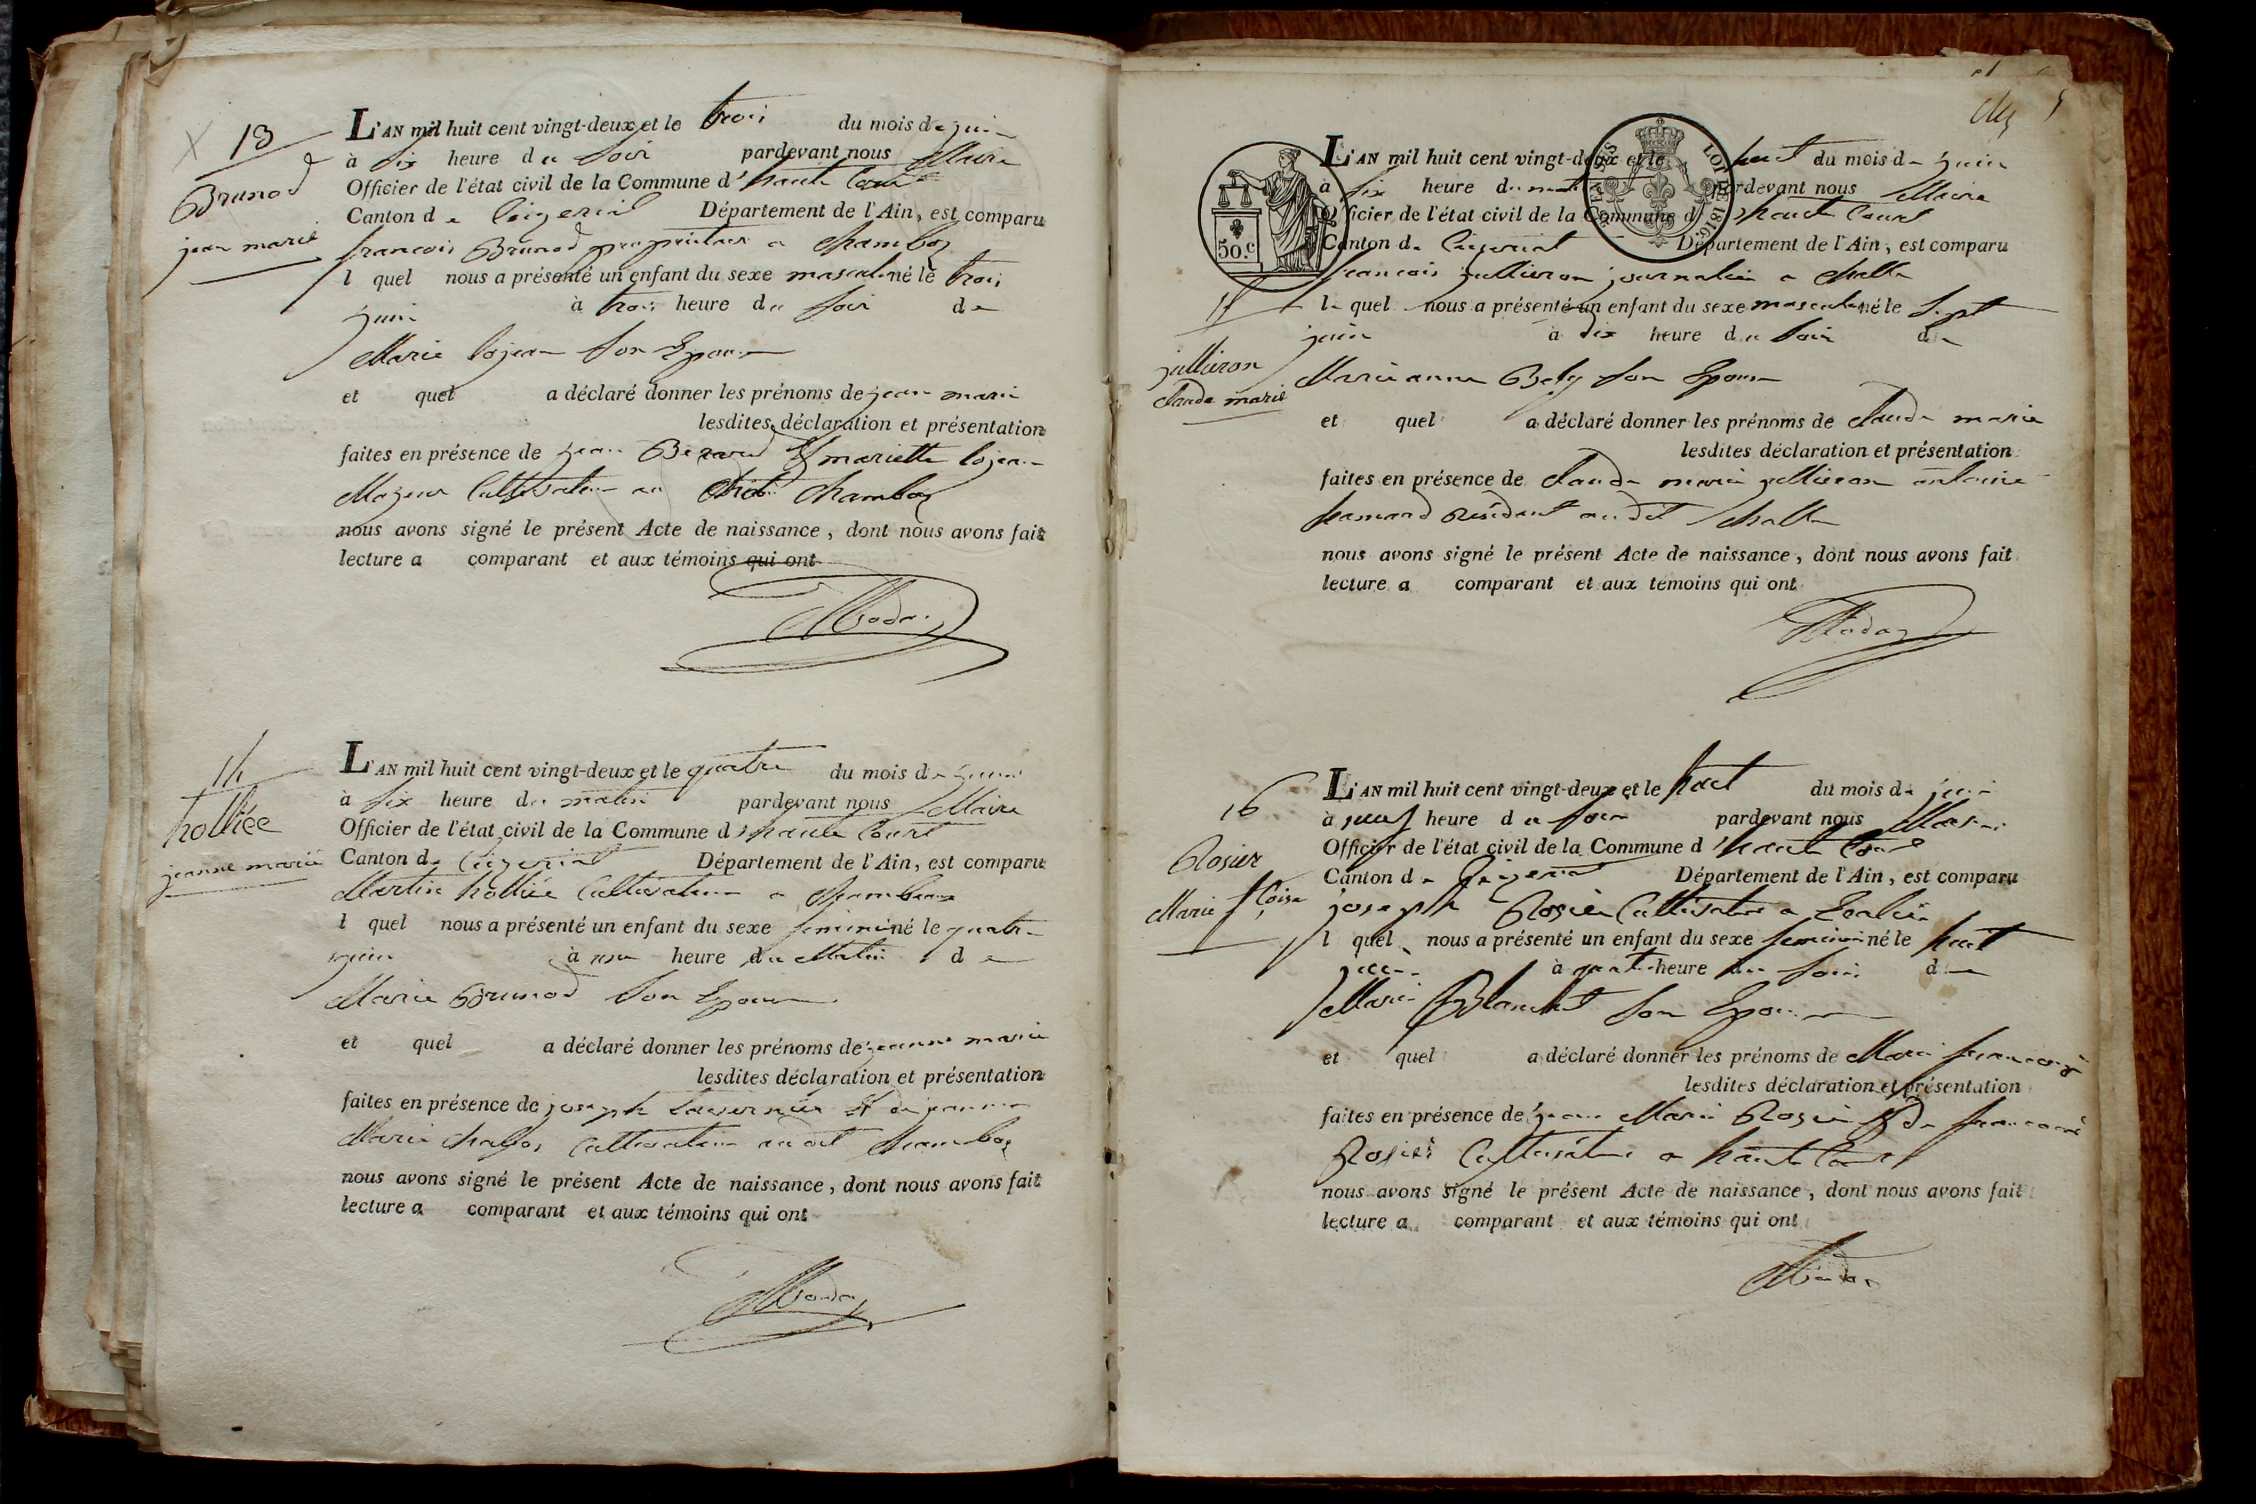 13
Brunod
jean marie
L'AN mil huit cent vingt-deux et le trois du mois de juin
à six heure du soir pardevant nous Maire
Officier de l'état civil de la Commune d'haute Court
Canton de Ceizeriat Département de l'Ain, est comparu
francois Brunod proprietaire a Chambos
l quel nous a présenté un enfant du sexe masculin né le trois
juin à trois heure du soir de
Marie lojean son Epouse
et quel a déclaré donner les prénoms de jean marie
lesdites déclaration et présentation
faites en présence de jean Berard et mariette lojean
Majeur Cultivateur au dit Chambos
nous avons signé le présent Acte de naissance, dont nous avons fait
lecture a comparant et aux témoins qui ont
14
holliée
jeanne marie
L'AN mil huit cent vingt-deux et le quatre du mois de juin
à six heure du matin pardevant nous Maire
Officier de l'état civil de la Commune d haute Court
Canton de Ceizeriat Département de l'Ain, est comparu
Martin hollié Cultivateur a
l quel nous a présenté un enfant du sexe feminin né le quatre
juin à une heure du Matin de
Marie Brunod son Epouse
et quel a déclaré donner les prénoms de jeanne marie
lesdites déclaration et présentation
faites en présence de joseph tavernier et de jeanne
Marie Cultivateur audit Chambos
nous avons signé le présent Acte de naissance, dont nous avons fait
lecture a comparant et aux témoins qui ont
50.c
LOI DE 1816
L'AN mil huit cent vingt-deux et le huit du mois de juin
à six heure du matin pardevant nous Maire
Officier de l'état civil de la Commune d haute Court
Canton de Ceizeriat Département de l'Ain, est comparu
francois jullieron journalier a Challe
15
jullieron
Claude marie
le quel nous a présenté un enfant du sexe masculin né le sept
juin à dix heure du soir de
Marie anne Bely son Epouse
et quel a déclaré donner les prénoms de Claude marie
lesdites déclaration et présentation
faites en présence de Claude marie jullieron antoine
résidant audit Challe
nous avons signé le présent Acte de naissance, dont nous avons fait
lecture a comparant et aux témoins qui ont
16
Rosier
Marie fcoise
L'AN mil huit cent vingt-deux et le huit du mois de juin
à neuf heure du soir pardevant nous Maire
Officier de l'état civil de la Commune d'haute Court
Canton de Ceizeriat Département de l'Ain, est comparu
joseph Rosier Cultivateur a
l quel nous a présenté un enfant du sexe feminin né le huit
juin à quatre heure du soir de
Marie Blanchet son Epouse
et quel a déclaré donner les prénoms de Marie francoise
lesdites déclaration et présentation
faites en présence de jean Marie Rosier et de francoise
Rosier Cultivateur a haute Court
nous avons signé le présent Acte de naissance, dont nous avons fait
lecture a comparant et aux témoins qui ont